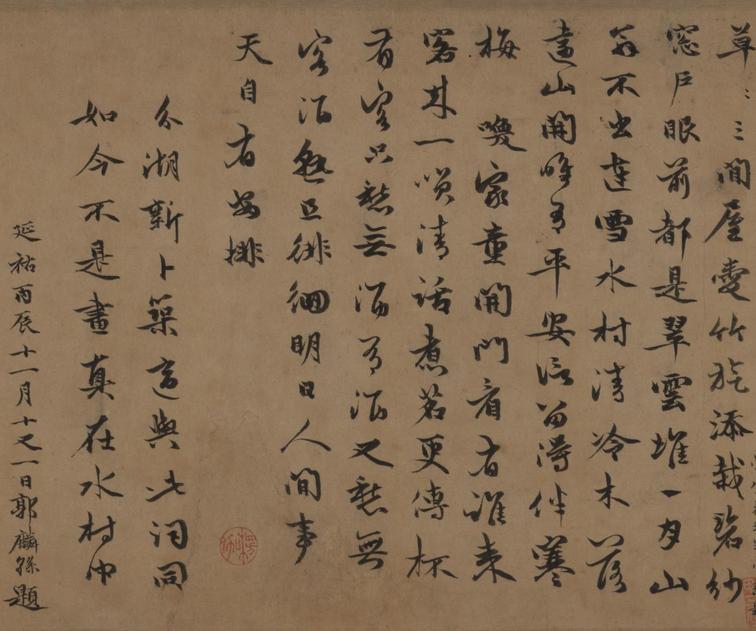 草〻三間屋愛竹旋添栽碧紗
窓戶眼前都是翠雲堆一月山
翁不出連雪水村清冷木落
遠山開唯有平安留得伴寒
梅 喚家童開門看有誰來
客來一笑清話煮茗更傳杯
有客只愁無酒有酒又愁無
客酒熟且徘徊明日人間事
天自有安排
分湖新卜築適與此詞同
如今不是畫真在水村中
延祐丙辰十一月十又一日郭麟孫題